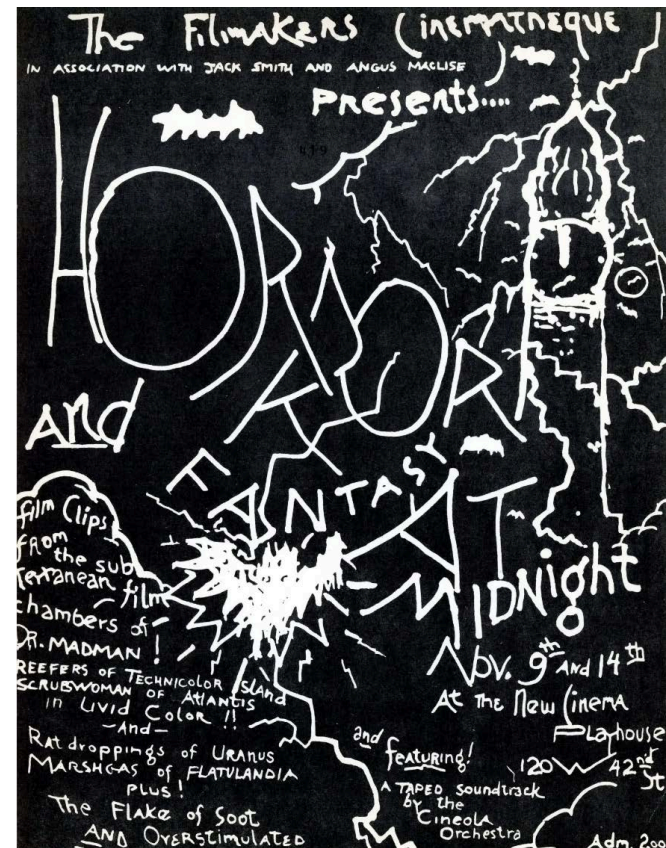 The FilmaKERS CinEMATHEQUE
IN ASSOCIATION WITH JACK SMITH AND ANGUS MACLISE
Presents....
HORROR
And
FANTASY
AT
MIDNight
film Clips
from
the sub
terranean film
chambers of
DR. MADMAN !
REEFERS OF TECHNICOLOR ISLAND
SCRUBWOMAN OF ATLANTIS
in Livid Color !!
—And—
Rat droppings of URANUS
MARSHGAS of FLATULANDIA
PLUS !
The Flake of Soot
AND OVERSTIMULATED
Nov. 9th AND 14th
At The New Cinema
Playhouse
120 W 42nd St
and featuring!
A TAPED soundtrack
by the
Cineola
Orchestra
Adm. 2.00